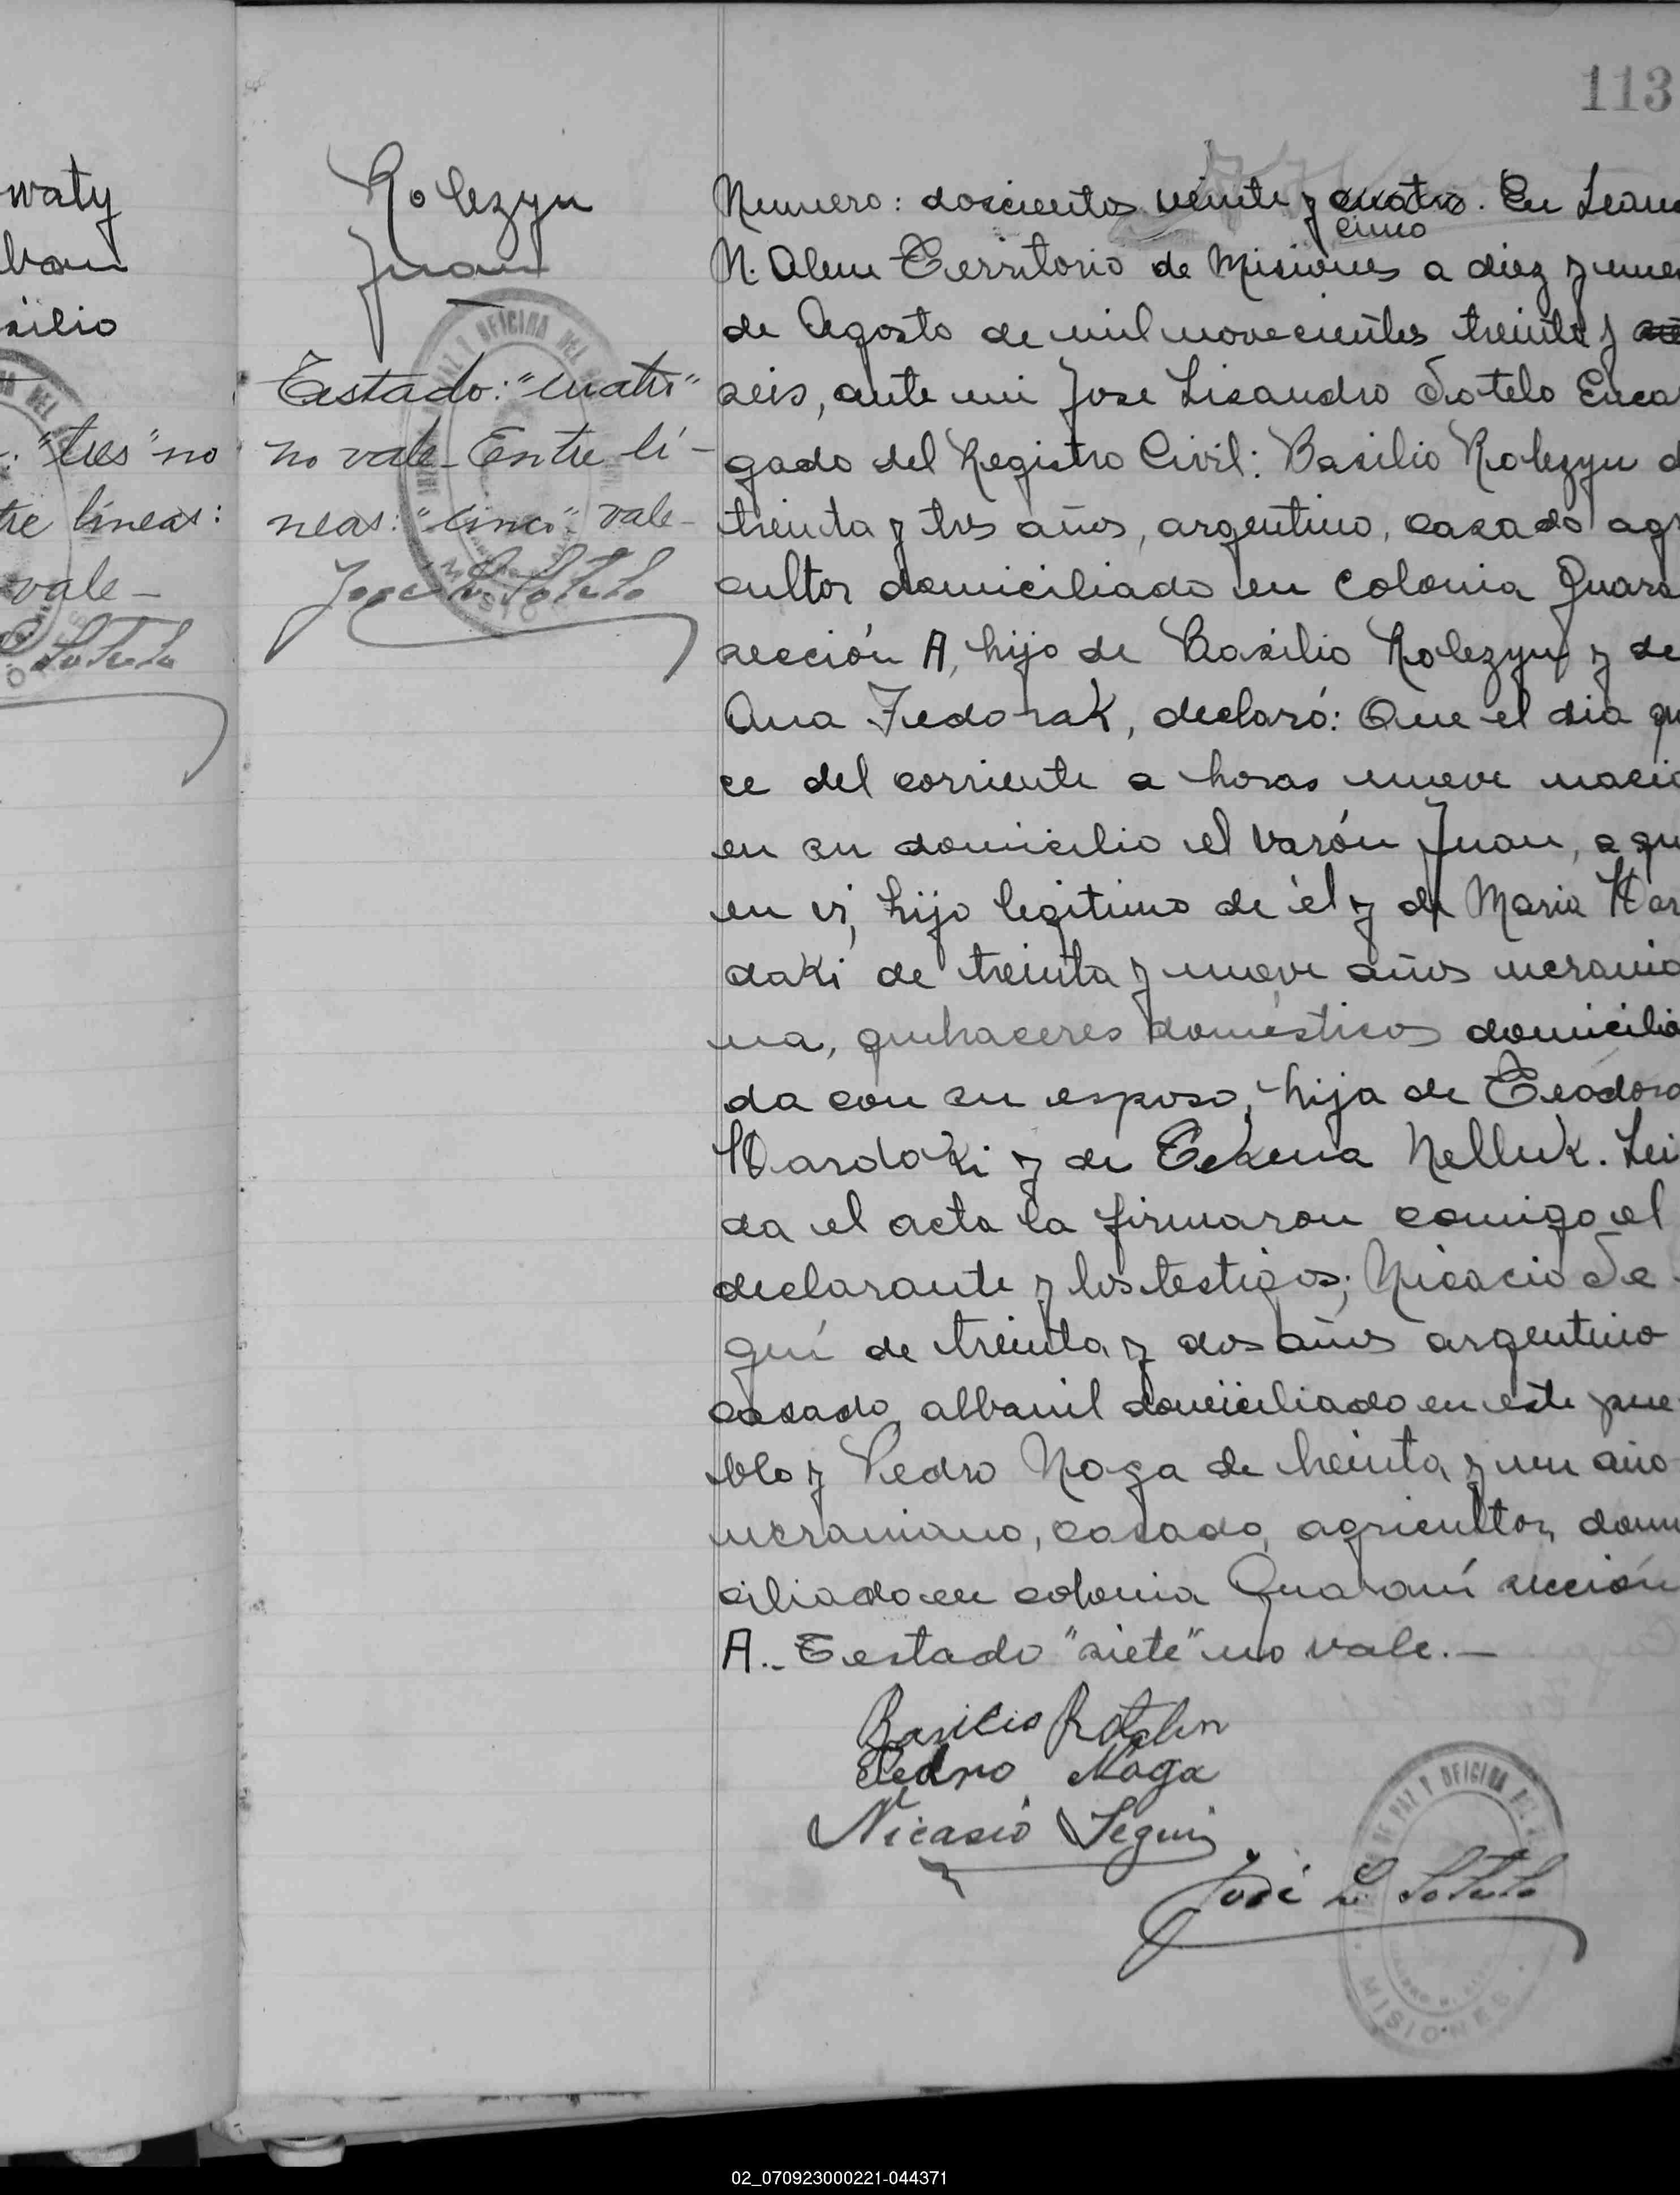 113
waty
silio
"tres" no
líneas:
vale-
Sotelo
Rolezyn
Juan
Testado: "cuatro"
no vale- Entre lí-
neas: "cinco" vale-
José L. Sotelo
Numero: doscientos veinte y cuatro. En Lean
cinco
N. Alem Territorio de Misiones a diez y nue
de Agosto de mil novecientos treinta y
seis, ante mi Jose Lisandro Sotelo Encar
gado del Registro Civil: Basilio Rolezyn d
treinta y tres años, argentino, casado agr
cultor domiciliado en colonia Guara
sección A, hijo de Basilio Rolezyn y de
Ana Fedorak, declaró: Que el dia qu
ce del corriente a horas nueve nacio
en su domicilio el varón Juan, a qu
en ví, hijo legitimo de él y de Maria War
daki de treinta y nueve años ucrania
na, quehaceres domésticos domicilia
da con su esposo, hija de Teodoro
Wardaki y de Nelluk. Lei
da el acta la firmaron comigo el
declarante y los testigos; Nicacio Se
guí de treinta y dos años argentino
casado albanil domiciliado en este pue
blo y Pedro Noga de treinta y un año
ucraniano, casado, agricultor, domi
ciliado en colonia Guaraní sección
A.- Testado "siete" no vale.-
Basilio
Pedro Noga
Nicasio Segui
José L. Sotelo
MISIONES
02_070923000221-044371